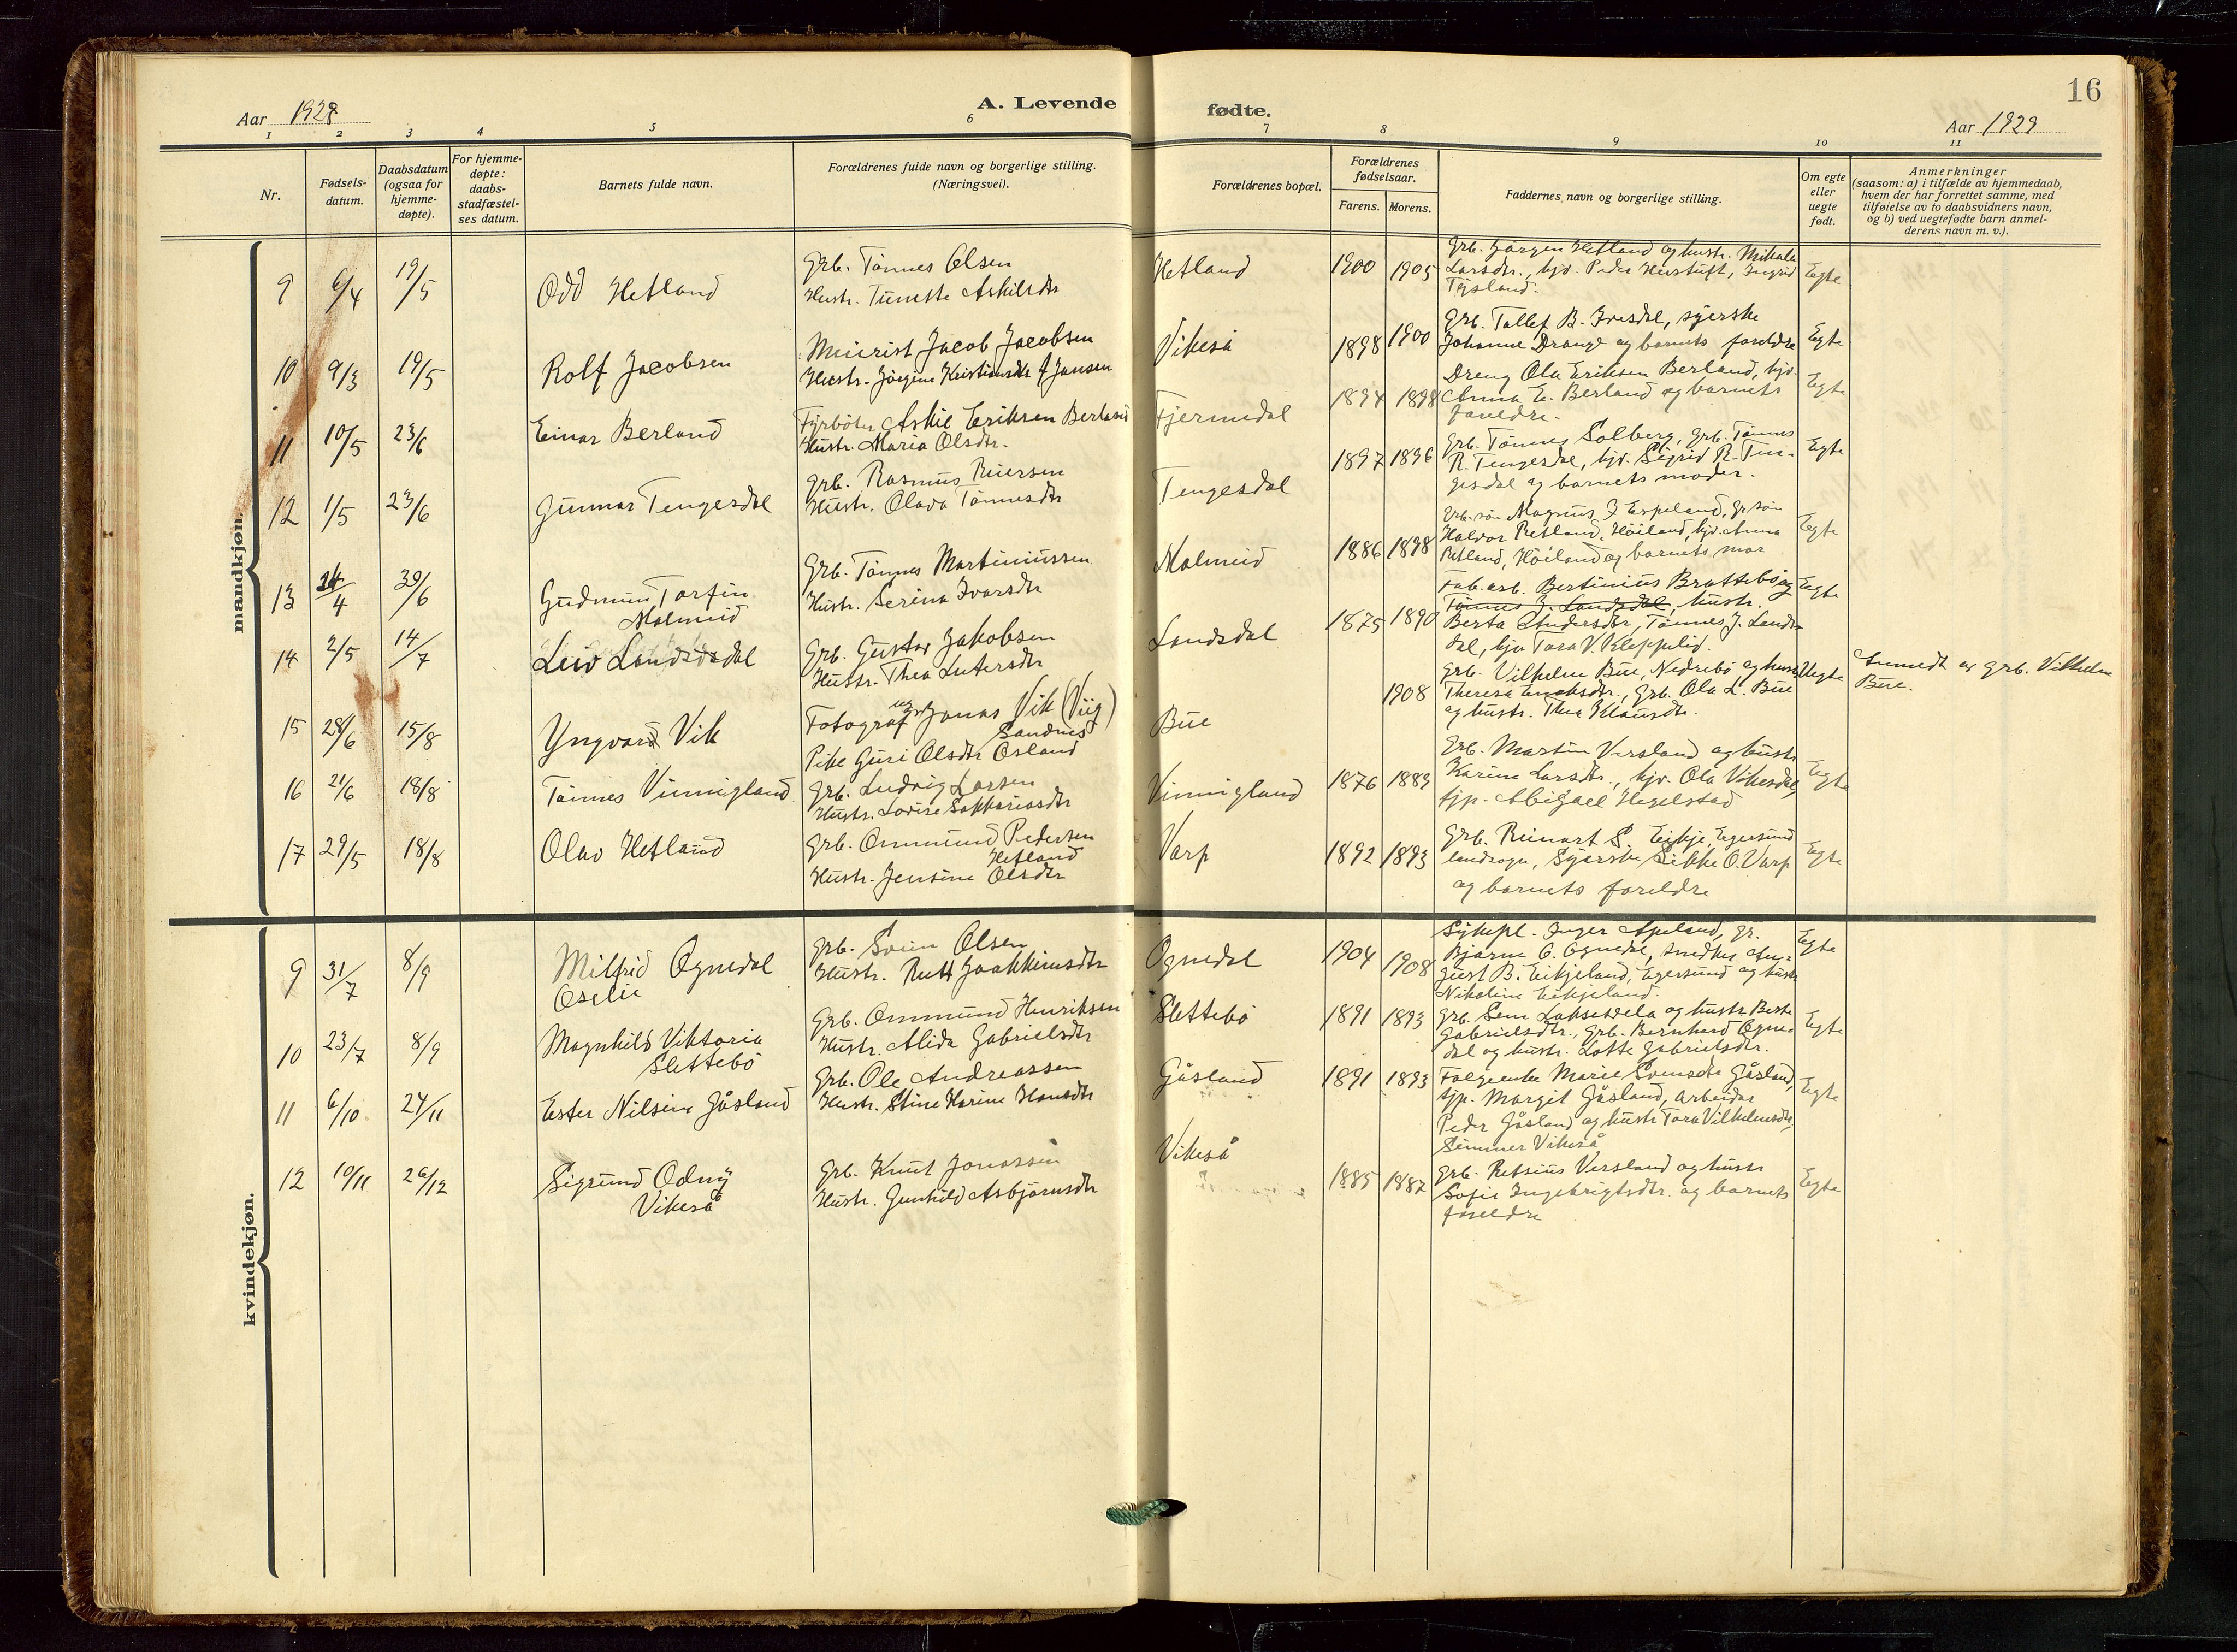 16
Aar 1928
A. Levende
fødte.
Aar 1929
1 2 3 4 5 6
7 8 9 10 11
Nr.
Fødsels-
datum.
Daabsdatum
(ogsaa for
hjemme-
døpte).
For hjemme-
døpte:
daabs-
stadfæstel-
ses datum.
Barnets fulde navn.
Forældrenes fulde navn og borgerlige stilling.
(Næringsvei).
Forældrenes bopæl.
Forældrenes
fødselsaar.
Farens. Morens.
Faddernes navn og borgerlige stilling.
Om egte
eller
uegte
født.
Anmerkninger
(saasom: a) i tilfælde av hjemmedaab,
hvem der har forrettet samme, med
tilføielse av to daabsvidners navn,
og b) ved uegtefødte barn anmel-
derens navn m. v.).
mandkjøn.
9 6/4 19/5 Odd Hetland
Grb. Tønnes Olsen
Hustr. Tunette Askilsdtr
Hetland 1900 1905
Grb. Jørgen Hetland og hustr. Mikala
Larsdtr., hjv. Peder , Ingrid
Tysland.
Egte
10 9/3 19/5 Rolf Jacobsen
Meierist Jacob Jacobsen
Hustr. Jørgine Kristiansdtr f Jansen
Vikeså 1898 1900
Grb. Tollef B. Ivesdal, syerske
Johanne Drange og barnets foreldre
Egte
11 10/5 23/6 Einar Berland
Fyrbøter Askil Eriksen Berland
Hustr. Maria Olsdtr.
Fjermedal 1894 1898
Dreng Ola Eriksen Berland, hjv.
Anna E. Berland og barnets
foreldre.
Egte
12 1/5 23/6 Gunnar Tengesdal
Grb. Rasmus Reiersen
Hustr. Olava Tønnesdtr
Tengesdal 1897 1896
Grb. Tønnes Solberg, Grb. Tønnes
R. Tengesdal, hjv. Sigrid R. Ten-
gesdal og barnets moder.
Egte
13 24/4 30/6 Gudmun Torfin
Malmeid
Grb. Tønnes Martiniussen
Hustr. Serina Ivarsdtr
Malmeid 1886 1898
Grb. søn Magnus J Espeland, gr søn
Halvor Retland, Høiland, hjv. Anna
Retland, Høiland og barnets mor
Egte
14 2/5 14/7 Leiv Landsdal
Grb. Gustav Jakobsen
Hustr. Thea Lutersdtr
Landsdal 1875 1890
Fab. arb. Bertinius Brattebø og
Tønnes J. Landsdal, hustr.
Berta Andersdtr, Tønnes J. Lands-
dal, hjv Tora V. Kleppelid.
Egte
15 28/6 15/8 Yngvard Vik
Fotograf ugf Jonas Vik (Viig)
Sandnes
Pike Guri Olsdtr Osland
Bue 1908
Grb. Vilhelm Bue, Nedrebø og hustr
Theresa , Grb. Ola L. Bue
og hustr. Thea Klausdtr.
Uegte
Anmeldt av grb. Vilhelm
Bue.
16 21/6 18/8 Tønnes Vinnigland
Grb. Ludvig Larsen
Hustr. Lovise Sakkariasdtr
Vinnigland 1876 1883
Grb. Martin Versland og hustr
Karine Larsdtr., hjv. Ola Vikesdal,
tjp. Abigael Hegelstad
Egte
17 29/5 18/8 Olav Hetland
Grb. Ommund Pedersen
Hetland
Hustr. Jensine Olsdtr
Varp 1892 1893
Grb. Reinert S. Eikje, Egersund
landsogn, Syerske Sikke O. Varp
og barnets foreldre
Egte
kvindekjøn.
9 31/7 8/9 Milfrid Ognedal
Oselie
Grb. Svein Olsen
Hustr. Rutt Joakkimsdtr
Ognedal 1904 1908
Sykepl. Inger Apeland, gr.
Bjarne O. Ognedal, snedker Au-
gust B. Eikjeland, Egersund og hustr
Nikoline Eikjeland.
Egte
10 23/7 8/9 Magnhild Viktoria
Slettebø
Grb. Ommund Henriksen
Hustr. Alida Gabrielsdtr
Slettebø 1891 1893
Grb. Sem Laksesvela og hustr Berte
Gabrielsdtr., Grb. Bernhard Ogne-
dal og hustr. Lotte Gabrielsdtr.
Egte
11 6/10 24/11 Ester Nilsine Gåsland
Grb. Ole Andreassen
Hustr. Stine Karine Hansdtr
Gåsland 1891 1893
Folgeenke Marie Svensdtr Gåsland,
tjp. Margit Gåsland, arbeidar
Peder Gåsland og hustr Tora Vilhelmsdtr,
Vikeså
Egte
12 10/11 26/12 Sigrund Odny
Vikeså
Grb. Knut Jonassen
Hustr. Gunhild Asbjørnsdtr
Vikeså 1885 1887
Grb. Retsius Versland og hustr
Sofie Ingebrigtsdtr. og barnets
foreldre
Egte